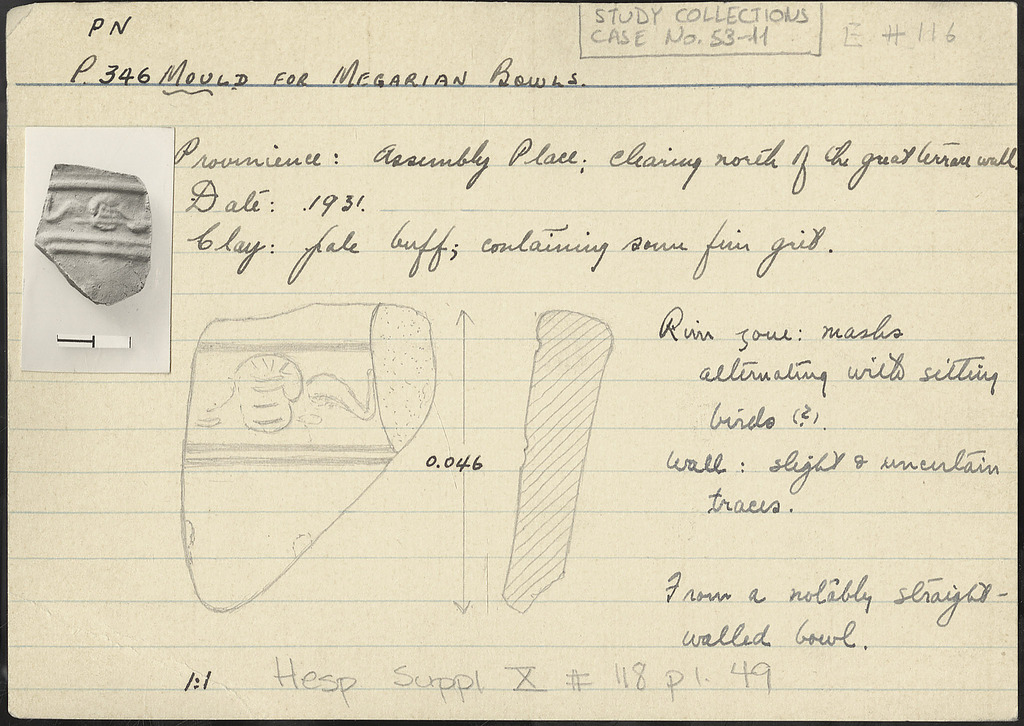 PN
STUDY COLLECTIONS
CASE No. 53-11
E # 116
P. 346 MOULD FOR MEGARIAN BOWLS.
Provinience: Assembly Place; clearing north of the great terrace wall
Date: 1931.
Clay: pale buff; containing some fine grit.
Rim zone: masks
alternating with sitting
birds (?).
Wall: slight & uncertain
traces.
0.046
From a notably straight-
walled bowl.
1:1
Hesp Suppl X # 118 pl. 49